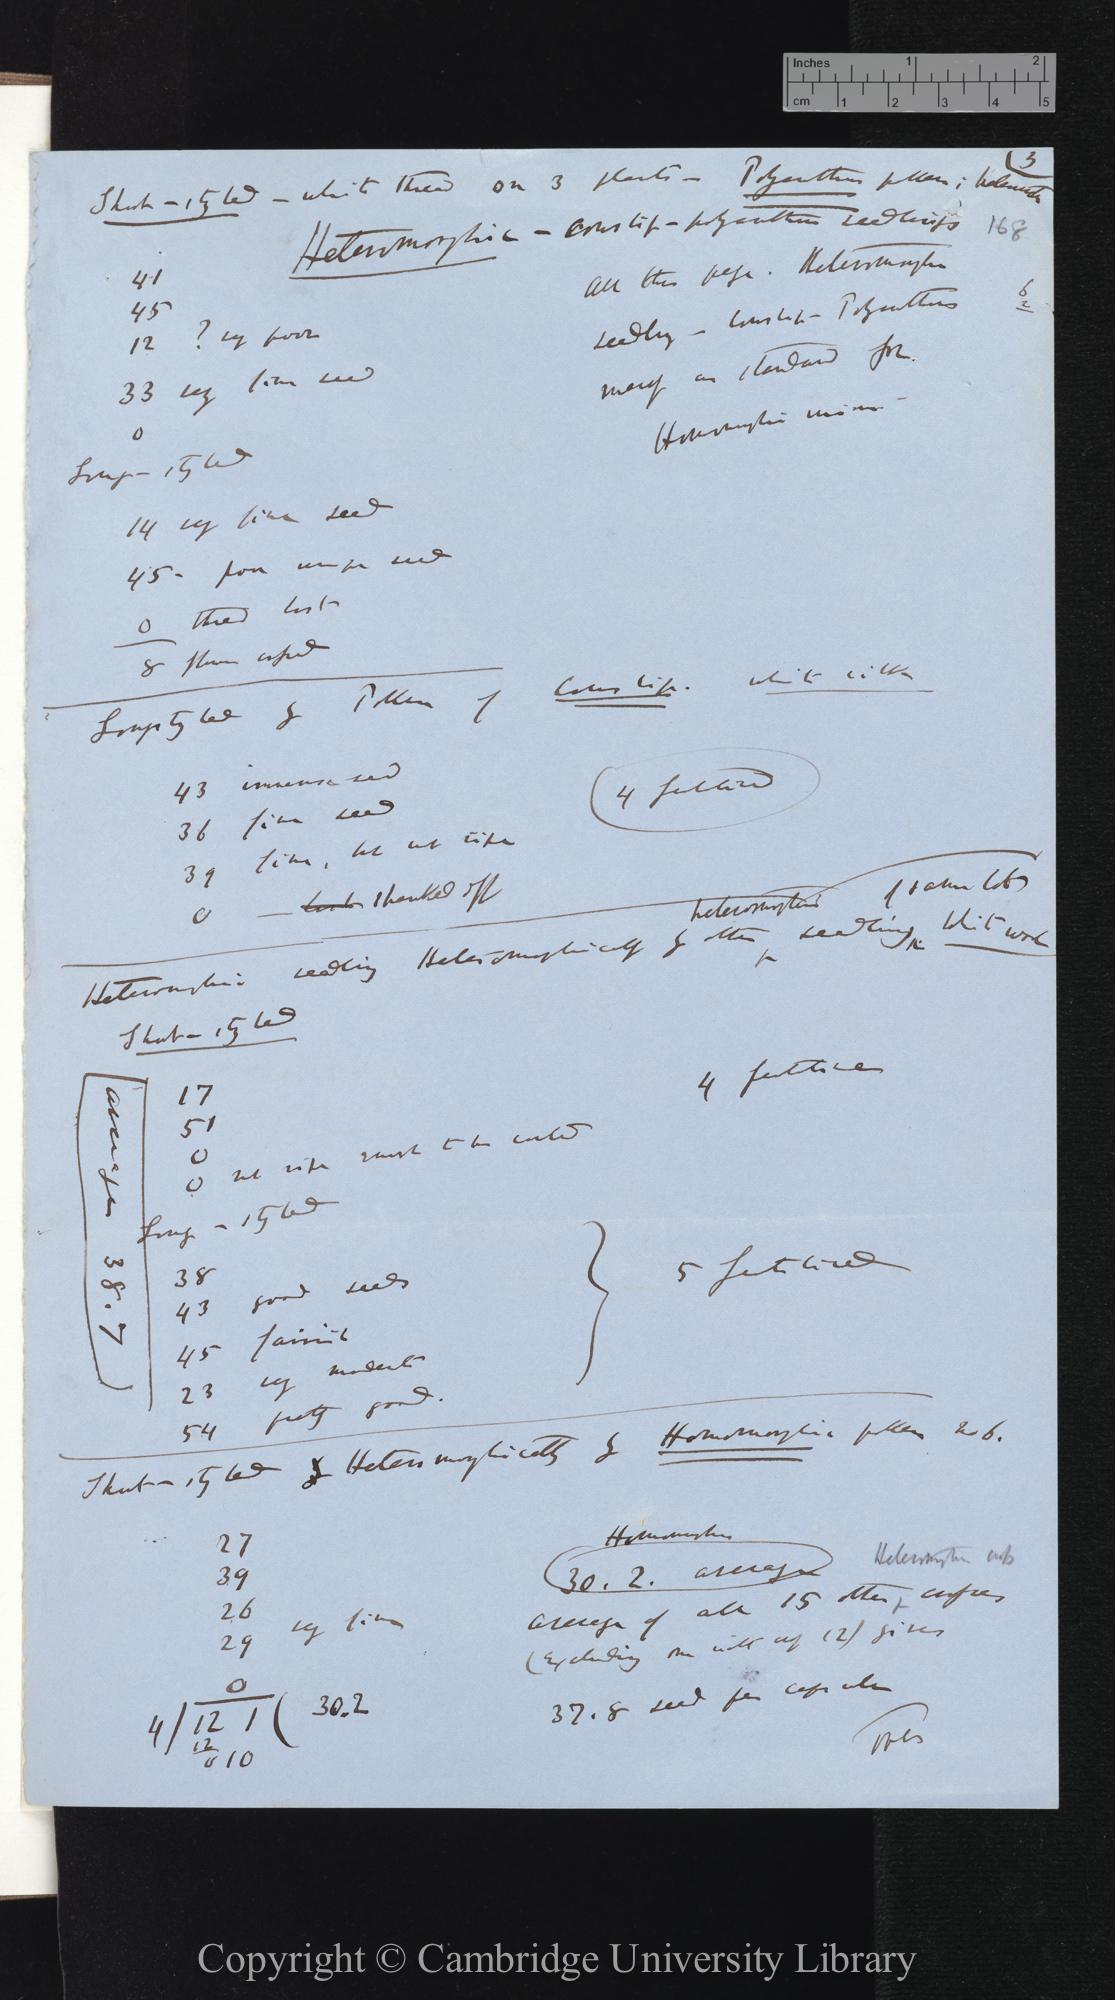 Inches 1 2
cm 1 2 3 4 5
3
Short-styled - white thread on 3 plants - Polyanthus pollen;
168
Heteromorphic - cowslip-polyanthus seedlings
41
45
12 ? very poor
33 very fine seed
0
all this page. Heteromorphic
seedling - Cowslip - Polyanthus
may as standard for
Homomorphic unions
6
2
Long-styled
14 very fine seed
45- poor seed
0 thread lost
8 flower
Longstyled by Pollen of Cowslip. white silk
43 immense seed
36 fine seed
39 fine, but not ripe
0 - shanked off
4 fertilised
Heteromorphic seedling Heteromorphically by other heteromorphic seedling, White wool
Short-styled
17
51
0
0 not ripe enough to be counted
4 fertilised
Long-styled
38
43 good seeds
45
23 very moderate
54 pretty good.
5 fertilised
average 38.7
Short-styled Heteromorphically by Homomorphic pollen no 6.
27
39
26
29 very fine
0
4)121(30.2
12
010
Homomorphic
30.2. average
Heteromorphic
average of all 15 other
(Excluding one with only 12) gives
37.8 seed per capsule